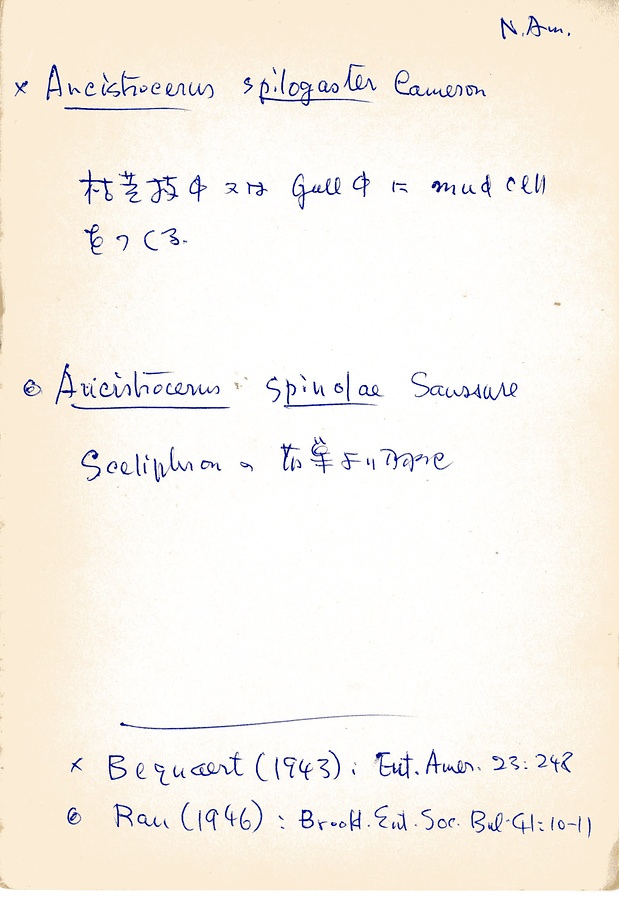 N. Am.
× Ancistrocerus spilogaster Cameron
枯茎枝中又は Gall 中に mud cell
をつくる.
◎ Ancistrocerus spinolae Saussure
Sceliphron の古巣より
× Bequaert (1943) : Ent. Amer. 23: 248
◎ Rau (1946) : Brookl. Ent. Soc. Bul. 41: 10-11